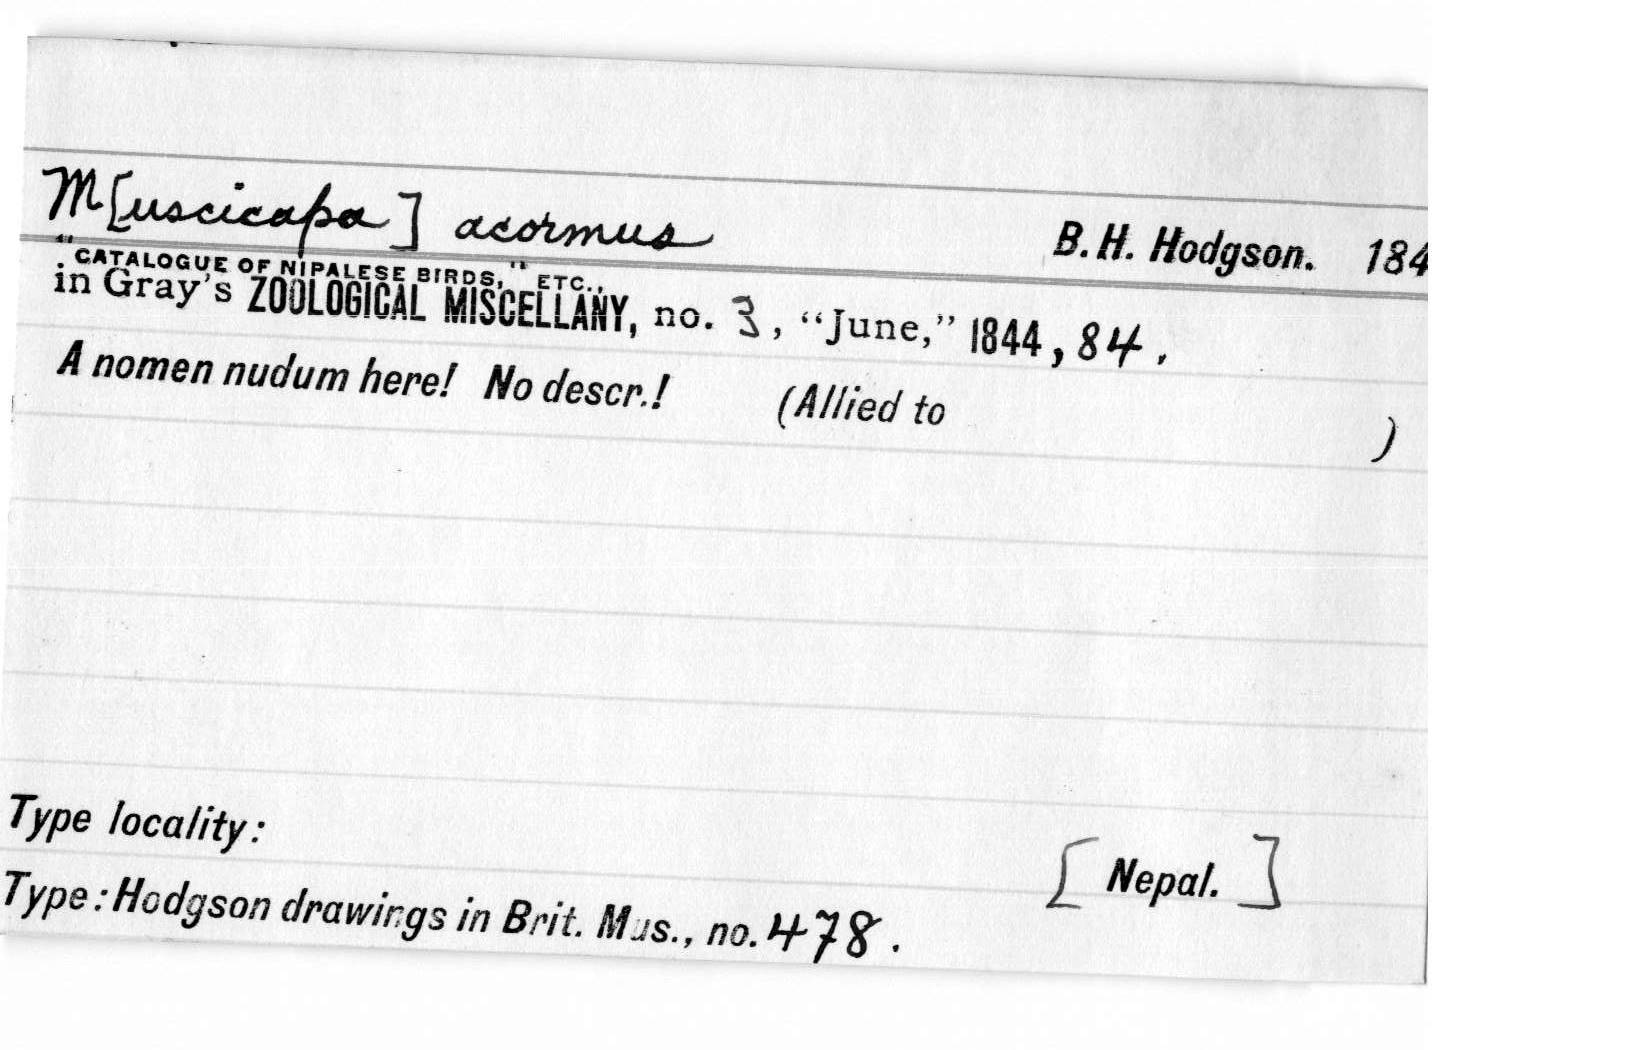 M[uscicapa] acormus B. H. Hodgson. 184
"CATALOGUE OF NIPALESE BIRDS," ETC.,
in Gray's ZOOLOGICAL MISCELLANY, no. 3, "June," 1844, 84.
A nomen nudum here! No descr.! (Allied to )
Type locality: [Nepal.]
Type: Hodgson drawings in Brit. Mus., no. 478.